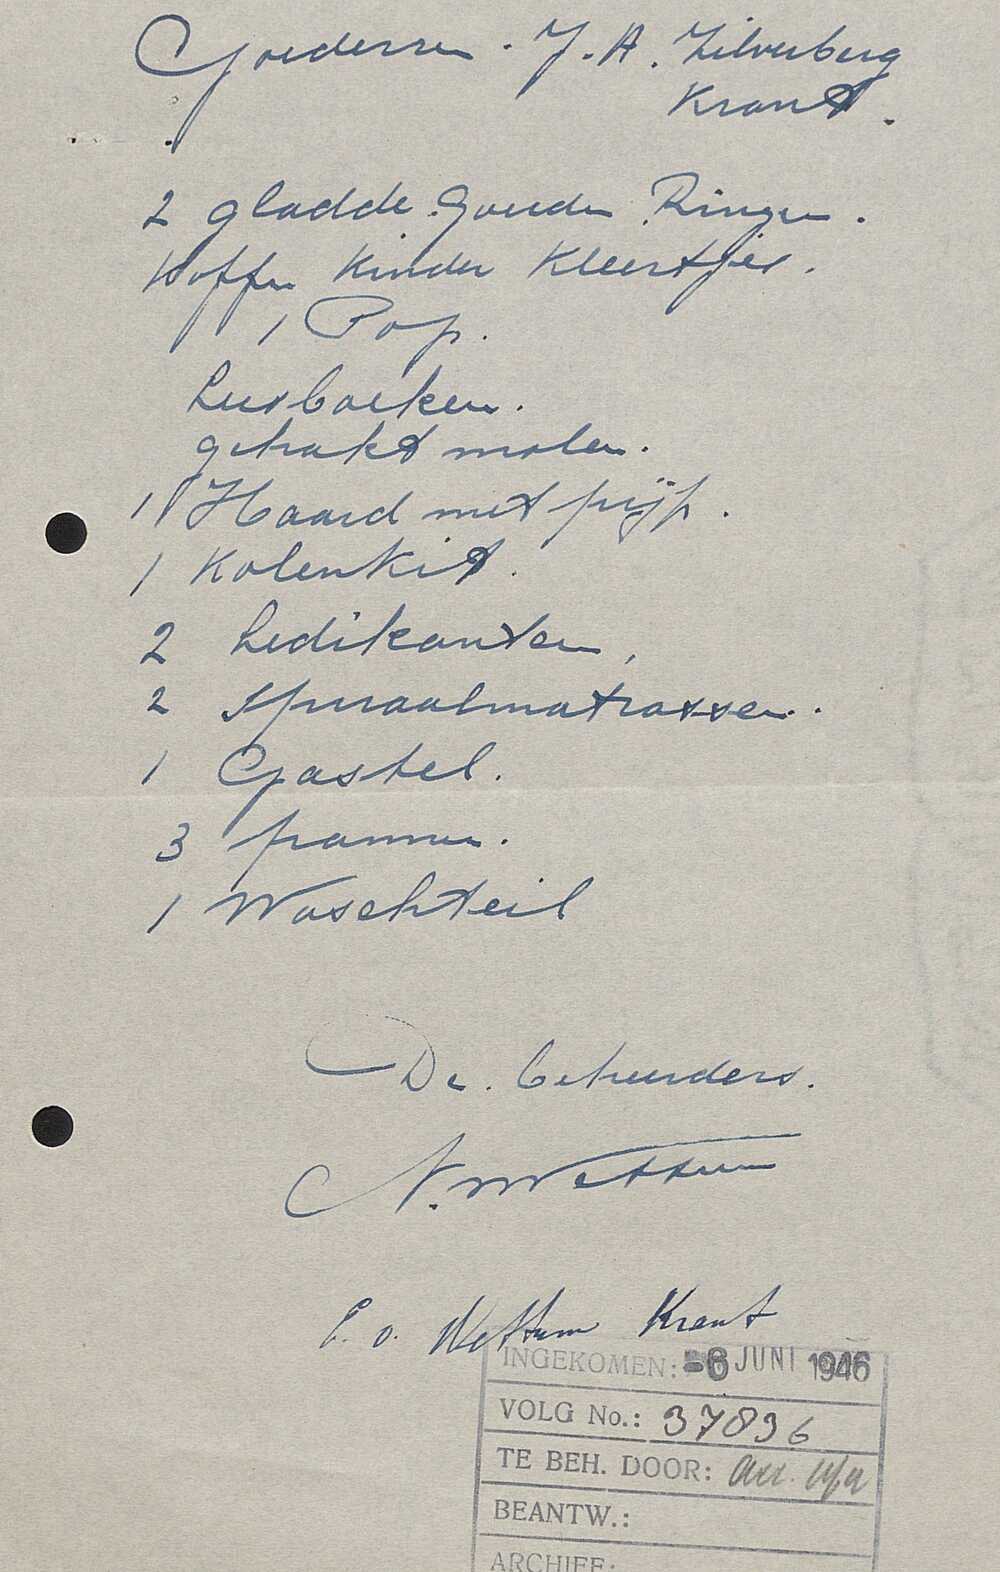 Goederen. J. A. Zilverberg
Krant.
2 gladde Gouden Ringen.
Koffer Kinder Kleertjes.
1 Pop.
Leesboeken.
gehakt molen.
1 Haard met pijp.
1 Kolenkit.
2 Ledikanten,
2 Spiraalmatrassen.
1 Gastel.
3 pannen.
1 Waschteil
De beheerders.
N. v Wettum
C. v. Wettum Krant
INGEKOMEN: -6 JUNI 1946
VOLG No.: 37896
TE BEH. DOOR:
BEANTW.:
ARCHIEF: